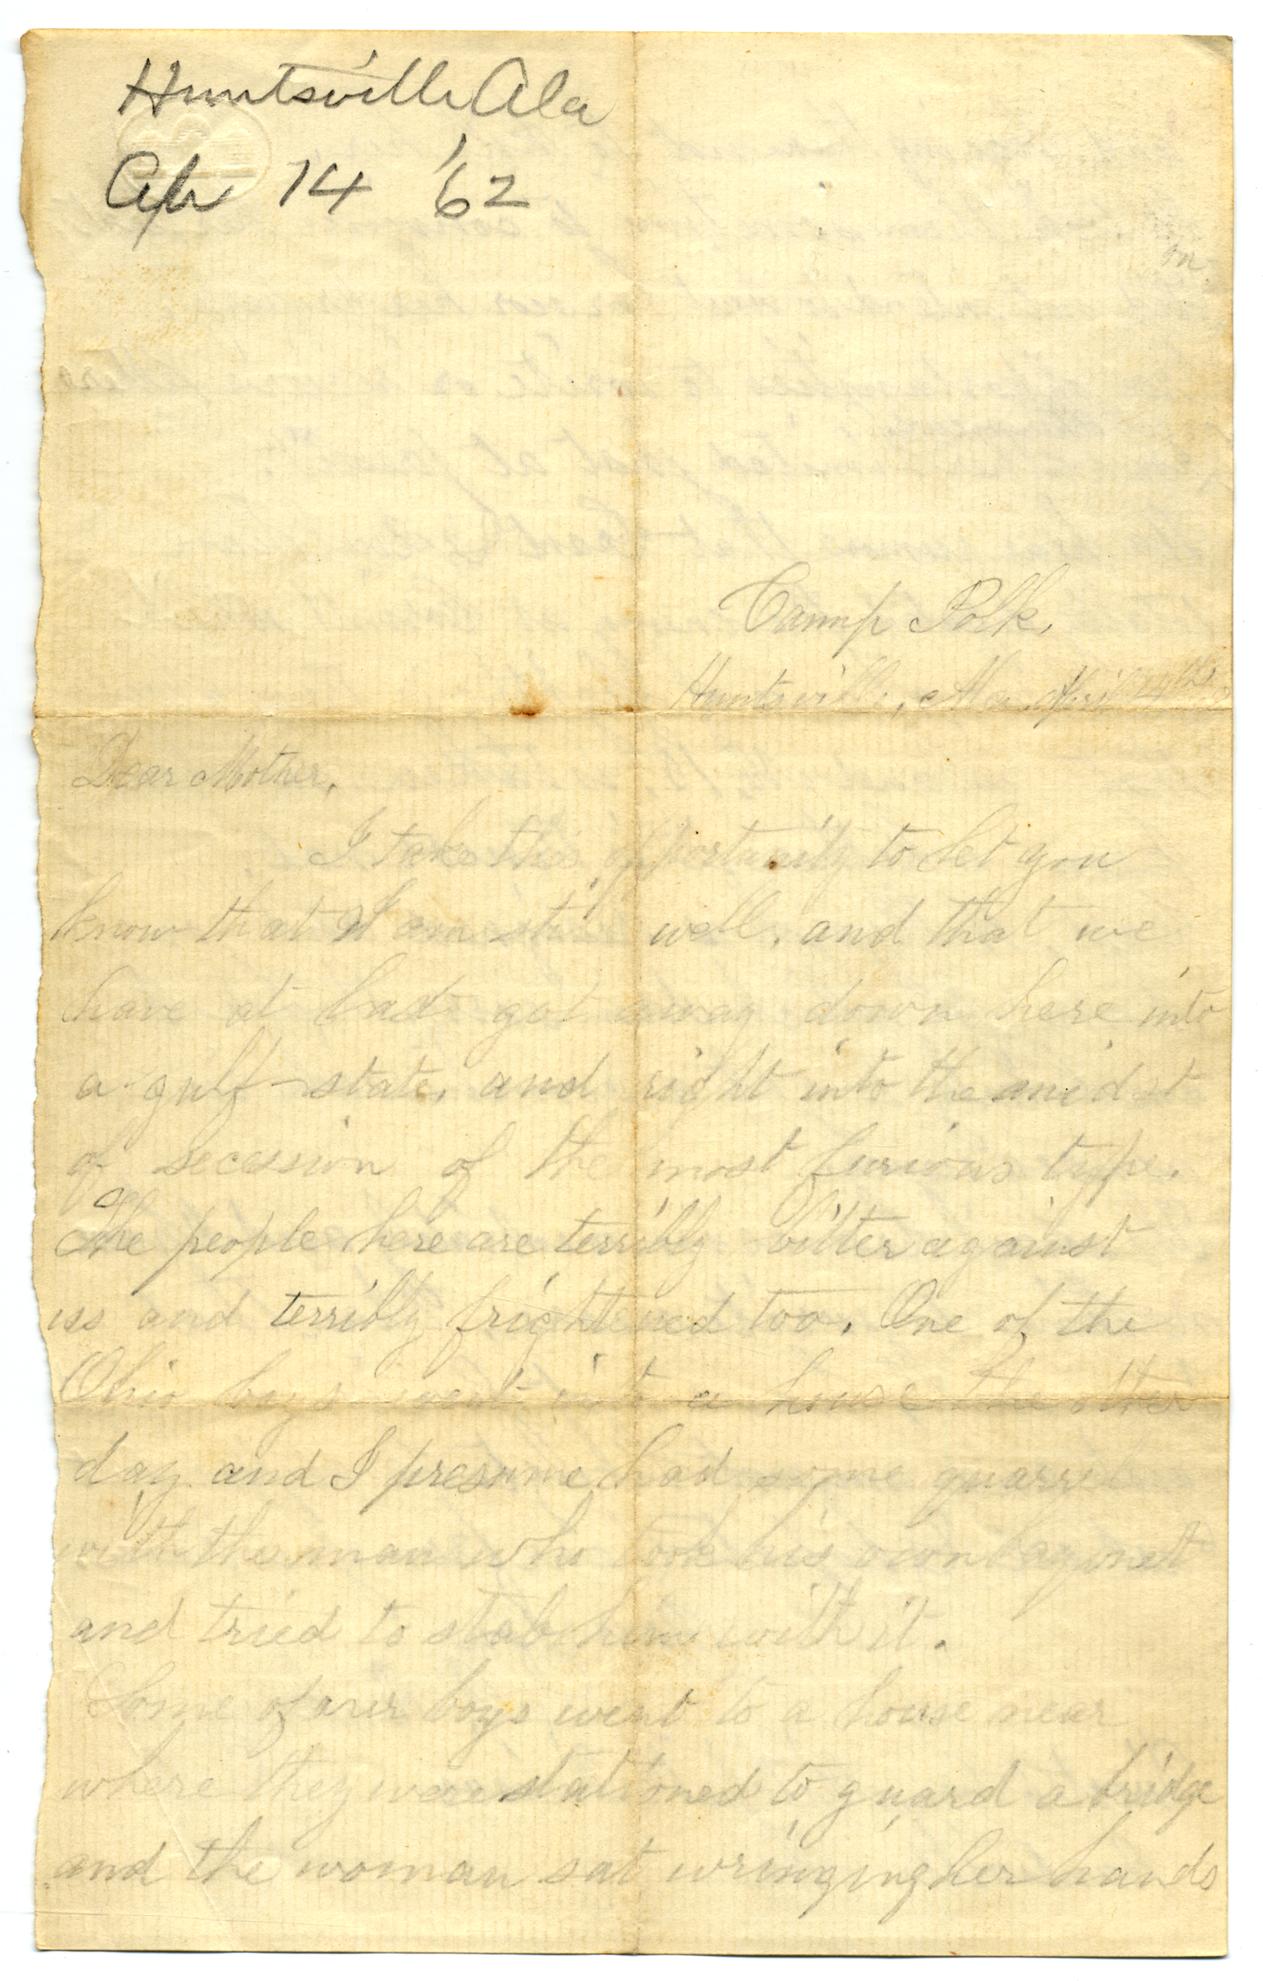 Huntsville Ala
Apr 14 '62
Camp Polk,
Huntsville, Ala. April 14th
Dear Mother,
I take this opportunity to let you
know that I am still well, and that we
have at last got away down here into
a gulf state, and right into the midst
of secession of the most furious type.
The people here are terribly bitter against
us and terribly frightened too. One of the
Ohio boys went into a house the other
day and I presume had some quarrel
with the man who took his own bayonet
and tried to stab him with it.
Some of our boys went to a house near
where they were stationed to guard a bridge
and the woman sat wringing her hands